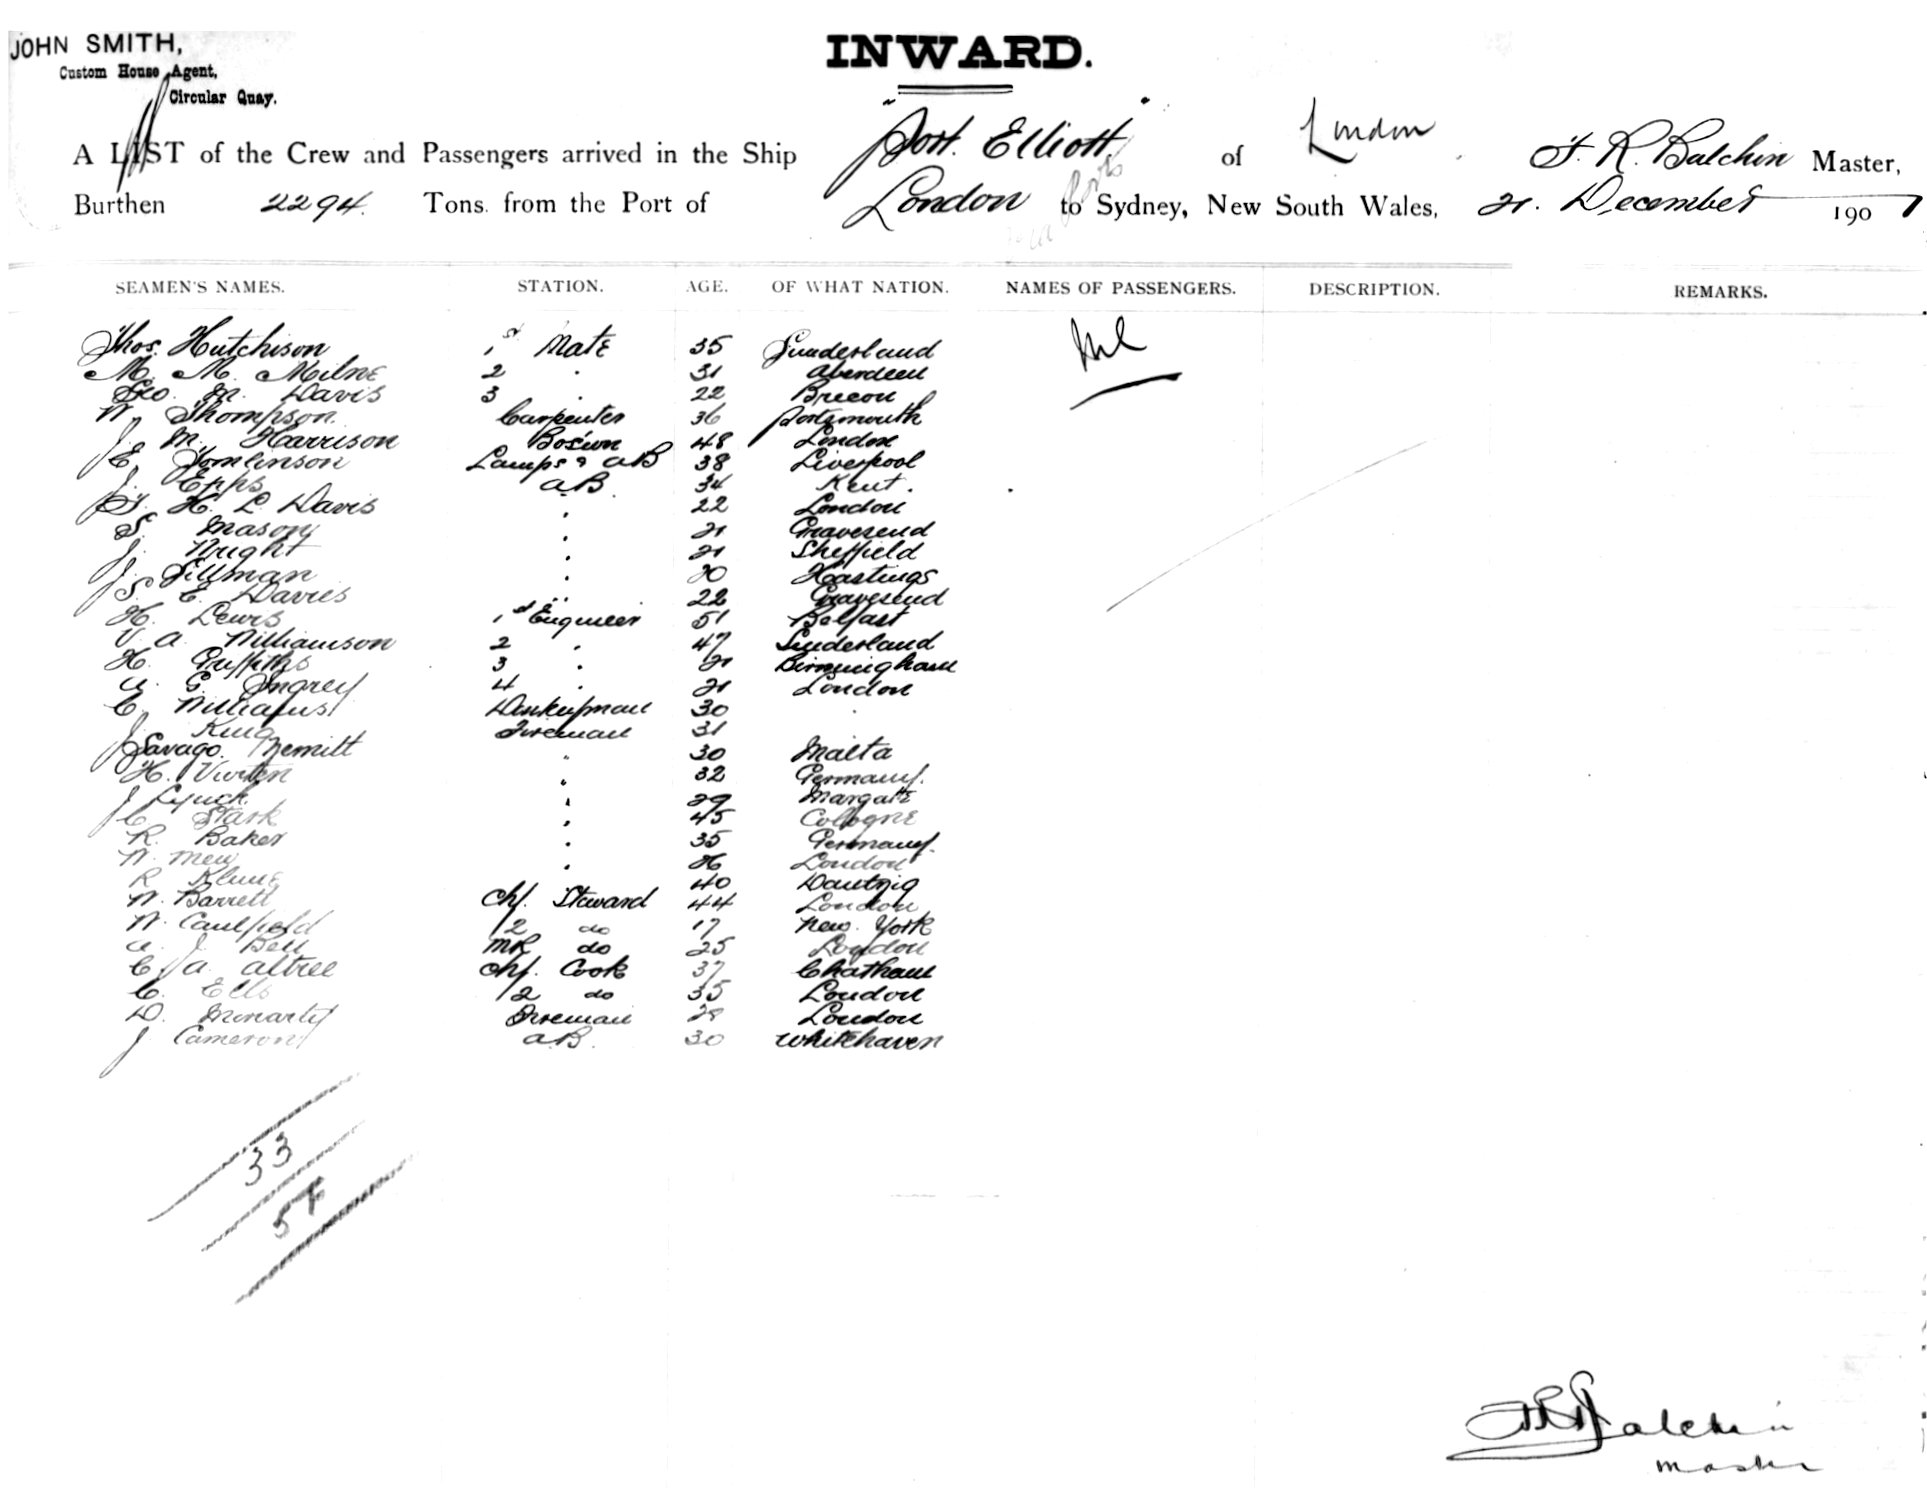 JOHN SMITH,
Custom House Agent,
Circular Quay.
INWARD.
A LIST of the Crew and Passengers arrived in the Ship "Port Elliott" of London F. R. Balchin Master,
Burthen 2294. Tons from the Port of London to Sydney, New South Wales, 21. December 1907
SEAMEN'S NAMES. STATION. AGE. OF WHAT NATION. NAMES OF PASSENGERS. DESCRIPTION. REMARKS.
Thos. Hutchison 1st Mate 35 Sunderland Nil
M. M. Milne 2 " 31 Aberdeen
Geo. M. Davis 3 " 22 Brecon
W. Thompson. Carpenter 36 Portsmouth
J. M. Harrison Bos'un 48 London
E. Tomlinson Lamps & AB 38 Liverpool
J. Epps A.B. 34 Kent.
T. H. L. Davis " 22 London
S. Mason " 21 Gravesend
J. Wright " 21 Sheffield
J. Sillman " 20 Hastings
S. E. Davies " 22 Gravesend
H. Lewis 1st Engineer 51 Belfast
V. A. Williamson 2 " 47 Sunderland
H. Griffiths 3 " 21 Birmingham
A. G. Ingrey 4 " 21 London
C. Williams Donkeyman 30 "
J. King Fireman 31
Savago " 30 Malta
H. " 32 Germany.
J Lynch " 29 Margate
C. Stark " 45 Cologne
R. Baker " 35 Germany.
W. Mew " 26 London
R 40 Dantzig
W. Barrett Chf. Steward 44 London
W. Caulfield 2 do 17 New York
A. J. Bell MR do 25 London
C. A. Altree Chf. Cook 37 Chatham
C. Ells 2 do 35 London
D. Moriarty Fireman 28 London
J Cameron A.B. 30 Whitehaven
33
F R Balchin
Master